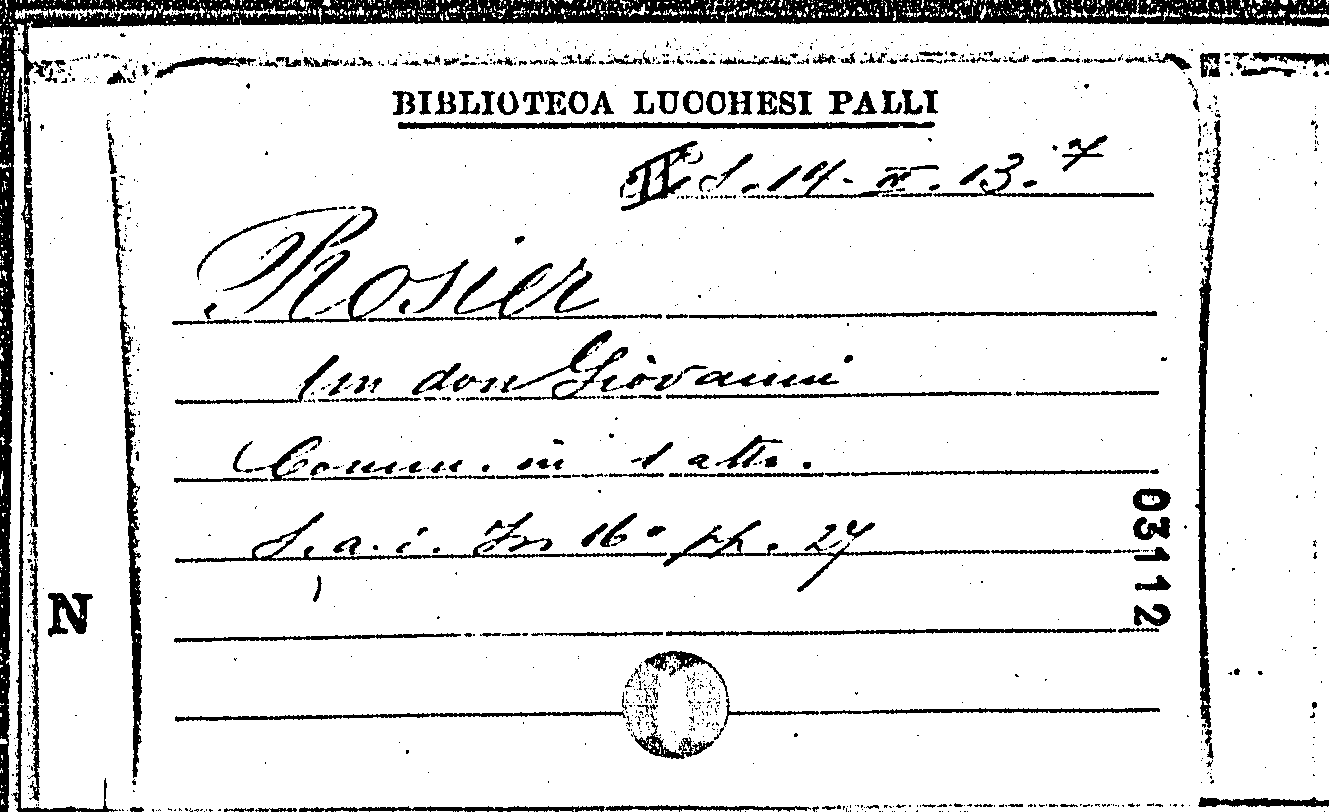 BIBLIOTECA LUCCHESI PALLI
S. 14. IV. 13. 7
Rosier
Un don Giovanni
Comm. in 1 atto.
S. a. i. In 16° pp. 27
03112
N